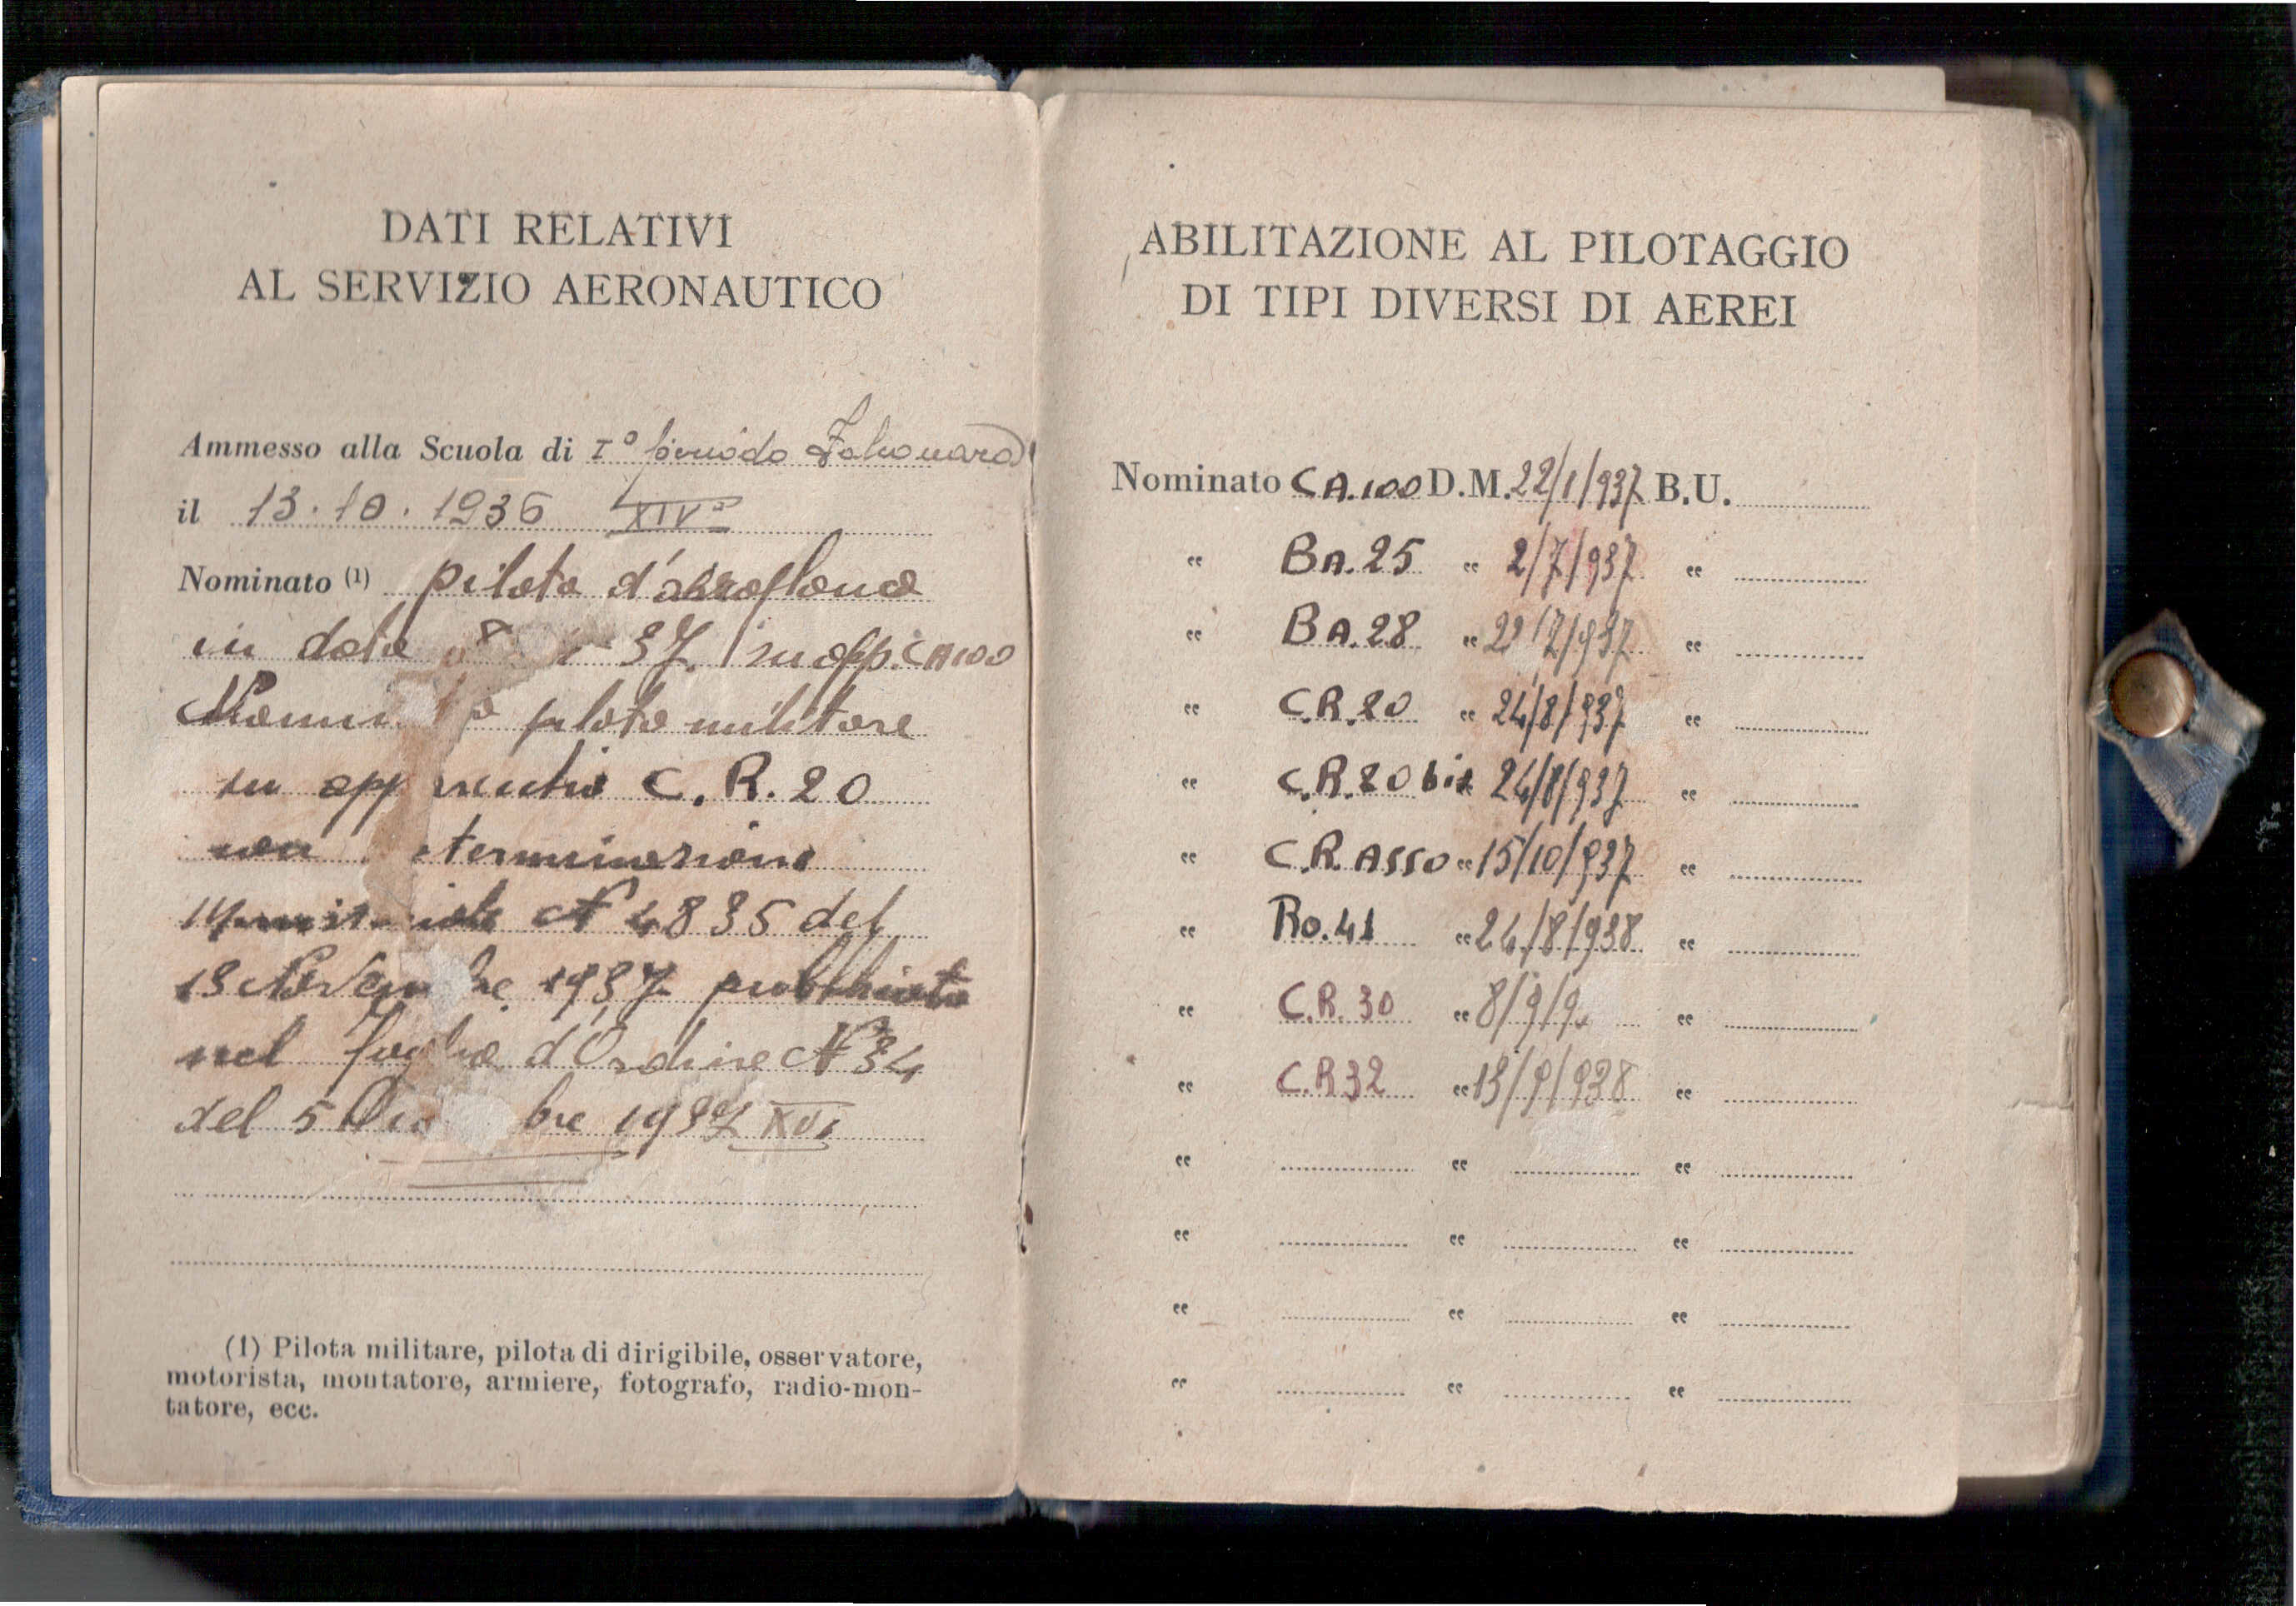 DATI RELATIVI
AL SERVIZIO AERONAUTICO
Ammesso alla Scuola di I° periodo
il 13.10.1936 XIV°
Nominato (1) pilota d'aeroplano
in data 37. su app. CA100
pilota militare
su C.R.20
N 4835 del
1937 pubblicata
nel foglio d'Ordine N 34
del 5 bre 1937 XVI
(1) Pilota militare, pilota di dirigibile, osservatore,
motorista, montatore, armiere, fotografo, radio-mon-
tatore, ecc.
ABILITAZIONE AL PILOTAGGIO
DI TIPI DIVERSI DI AEREI
Nominato CA.100 D.M. 22/1/937 B.U.
“ BA.25 “ 2/7/937 “
“ BA.28 “ 22/7/937 “
“ C.R.20 “ 24/8/937 “
“ C.R.20 bis “ 24/8/937 “
“ C.R. ASSO “ 15/10/937 “
“ Ro.41 “ 24/8/938 “
“ C.R.30 “ 8/9/9 “
“ C.R32 “ 13/9/938 “
“ “ “
“ “ “
“ “ “
“ “ “